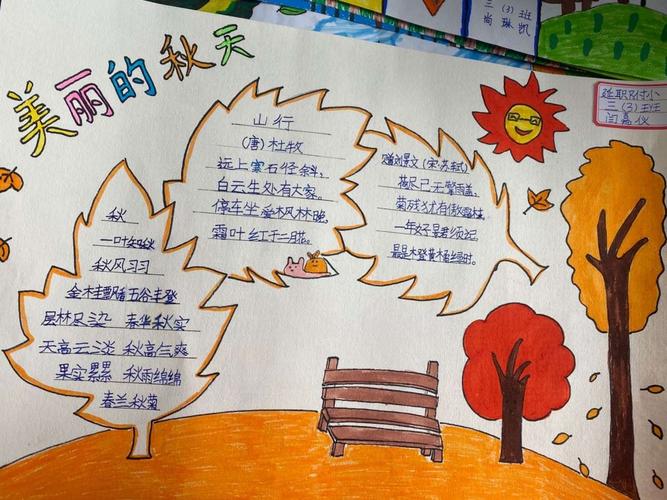 美丽的秋天
三(3)班
尚琳凯
延职附小
三(3)班
闫嘉仪
山行
(唐)杜牧
远上寒石径斜,
白云生处有大家。
停车坐爱枫林晚,
霜叶红于二月花。
赠刘景文(宋·苏轼)
荷尽已无擎雨盖,
菊残犹有傲霜枝。
一年好景君须记,
最是橙黄橘绿时。
秋
一叶知秋
秋风习习
金桂飘香五谷丰登
层林尽染 春华秋实
天高云淡 秋高气爽
果实累累 秋雨绵绵
春兰秋菊